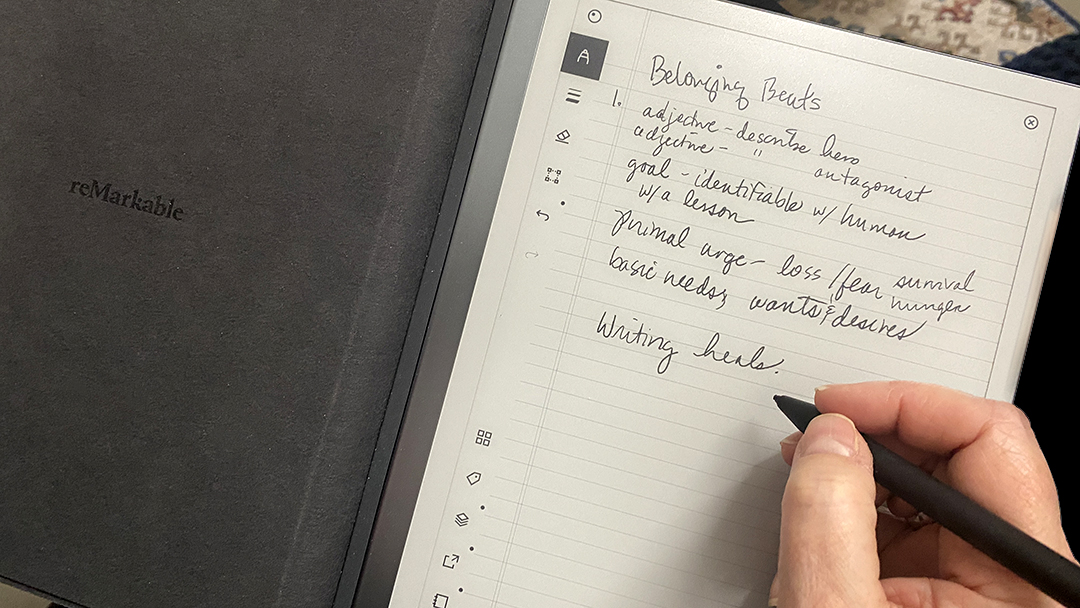 reMarkable
A
Belonging Beats
1. adjective - describe hero
adjective - " antagonist
goal - identifiable w/ human
w/a lesson
Primal urge - loss/fear survival
hunger
basic needs, wants & desires
Writing heals.